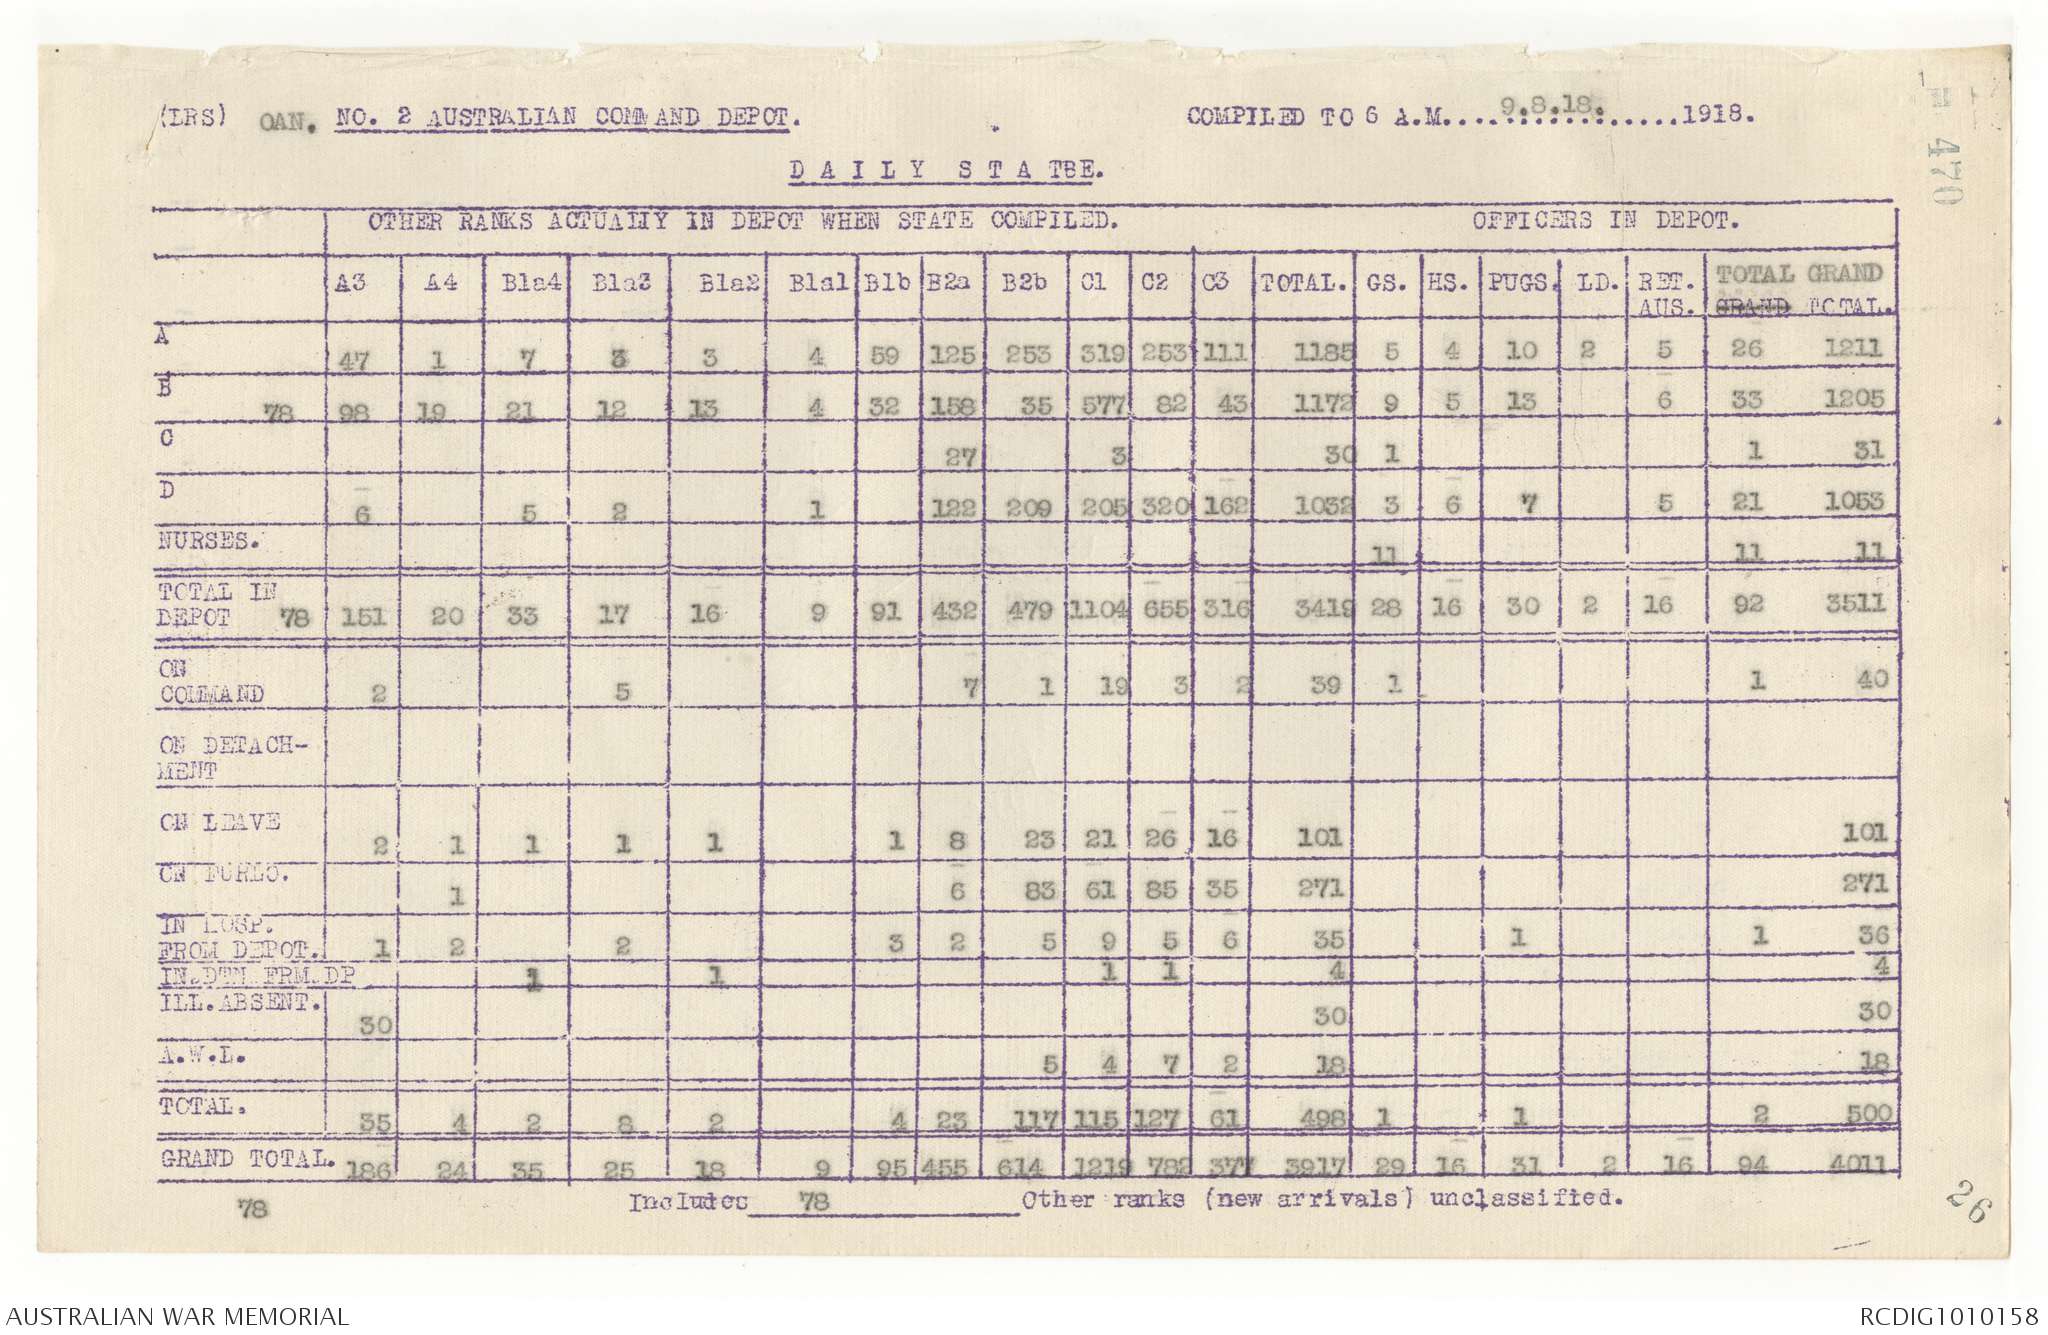 (LRS) OAN. NO. 2 AUSTRALIAN COMMAND DEPOT. COMPILED TO 6 A.M....9.8.18.....1918.
DAILY STATBE.
OTHER RANKS ACTUALLY IN DEPOT WHEN STATE COMPILED. OFFICERS IN DEPOT.
A3 A4 B1a4 B1a3 B1a2 B1a1 B1b B2a B2b C1 C2 C3 TOTAL. GS. HS. PUGS. LD. RET. AUS. TOTAL GRAND
GRAND TOTAL.
A 47 1 7 3 3 4 59 125 253 319 253 111 1185 5 4 10 2 5 26 1211
B 78 98 19 21 12 13 4 32 158 35 577 82 43 1172 9 5 13 6 33 1205
C 27 3 30 1 1 31
D 6 5 2 1 122 209 205 320 162 1032 3 6 7 5 21 1053
NURSES. 11 11 11
TOTAL IN
DEPOT 78 151 20 33 17 16 9 91 432 479 1104 655 316 3419 28 16 30 2 16 92 3511
ON
COMMAND 2 5 7 1 19 3 2 39 1 1 40
ON DETACH-
MENT
ON LEAVE 2 1 1 1 1 1 8 23 21 26 16 101 101
ON FURLO. 1 6 83 61 85 35 271 271
IN HOSP.
FROM DEPOT. 1 2 2 3 2 5 9 5 6 35 1 1 36
IN.DTN.FRM.DP 1 1 1 1 4 4
ILL.ABSENT. 30 30 30
A.W.L. 5 4 7 2 18 18
TOTAL. 35 4 2 8 2 4 23 117 115 127 61 498 1 1 2 500
GRAND TOTAL. 186 24 35 25 18 9 95 455 614 1219 782 377 3917 29 16 31 2 16 94 4011
78 Includes 78 Other ranks (new arrivals) unclassified.
470
26
AUSTRALIAN WAR MEMORIAL RCDIG1010158